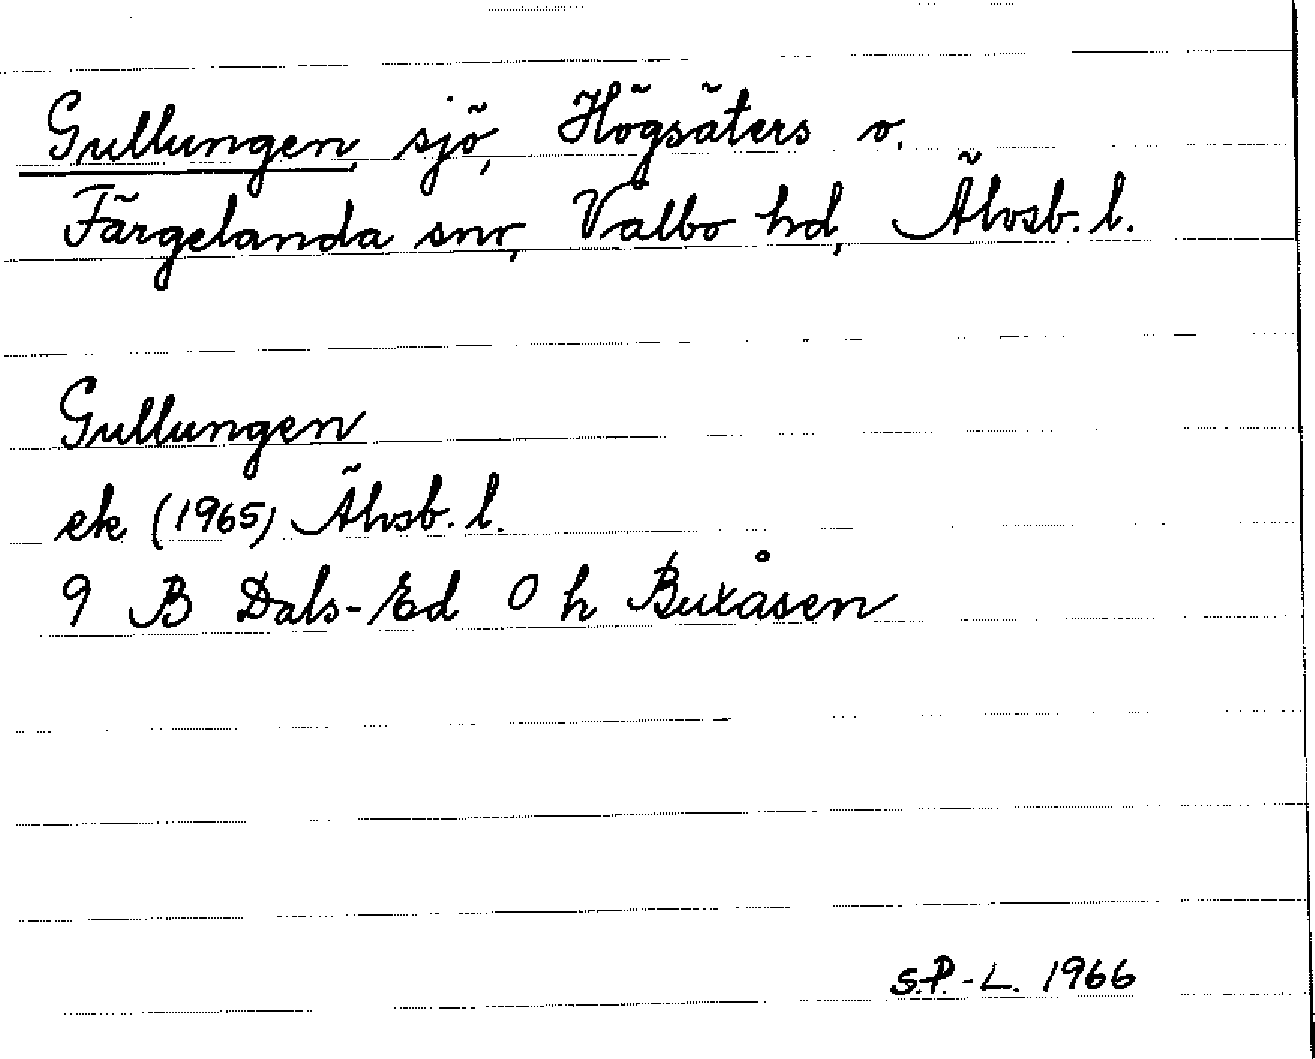 Gullungen, sjö, Högsäters o.
Färgelanda snr, Valbo hd, Älvsb. l.
Gullungen
ek (1965) Älvsb. l.
9 B Dals-Ed 0 h Buxåsen
S.P.-L. 1966